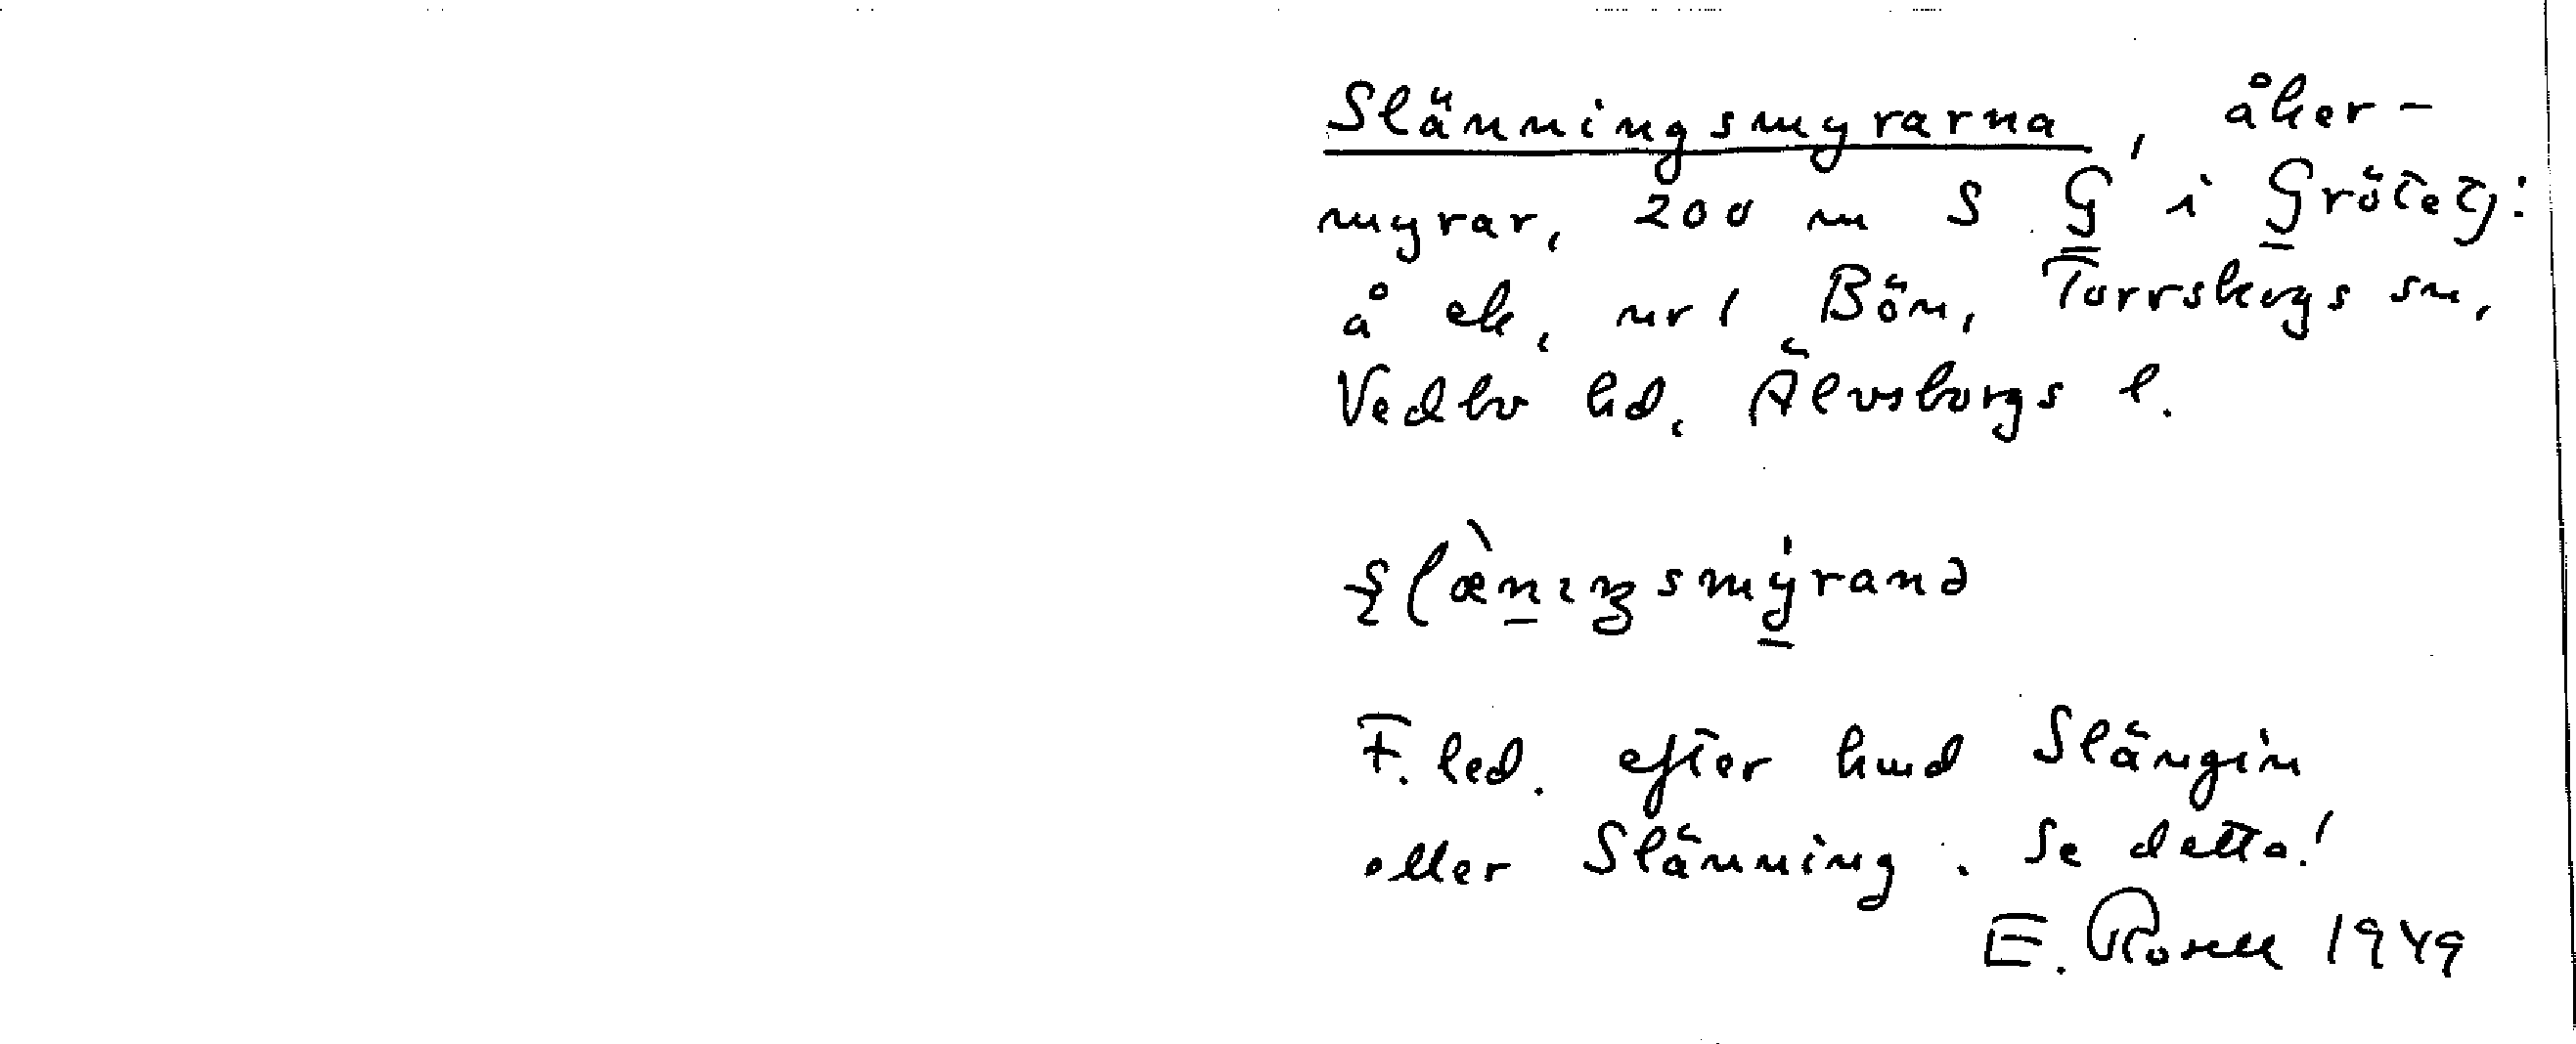 Slänningsmyrarna, åker-
myrar, 200 m S G i Grötetj:
å ek, nr 1 Bön, Torrskogs sn,
Vedbo hd, Älvsborgs l.
F. led. efter hmd Slängin
eller Slänning. Se detta!
E. Rosell 1949